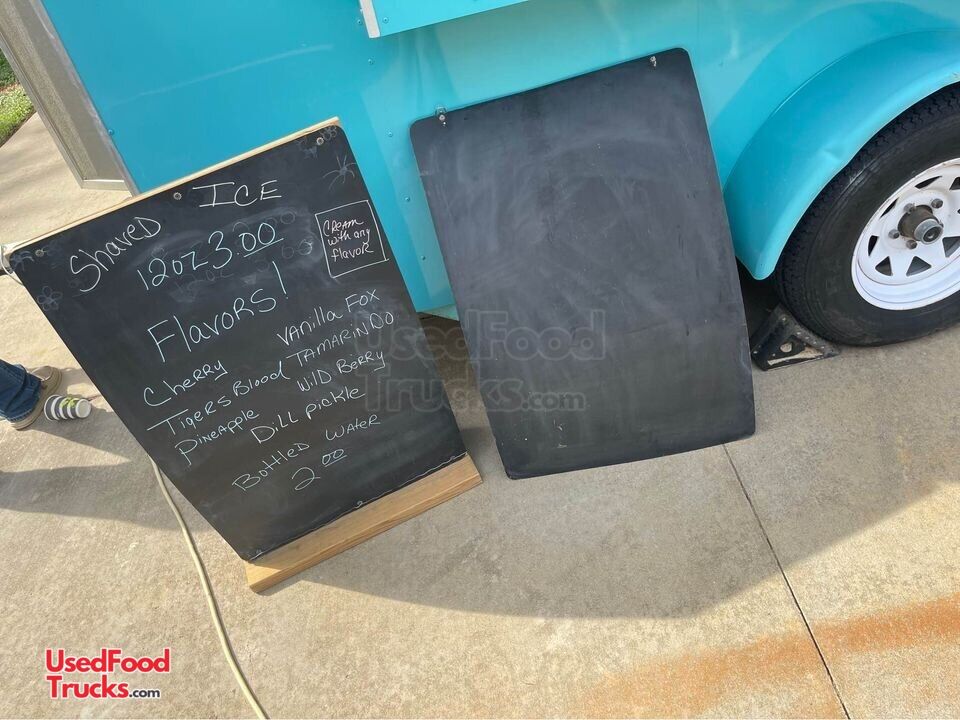 Shaved ICE
12oz 3.00
CREAM
with any
flavor
Flavors!
Cherry Vanilla Fox
Tigers Blood TAMARINDO
Pineapple Wild Berry
Dill pickle
Bottled Water
2.00
UsedFood
Trucks.com
UsedFood
Trucks.com